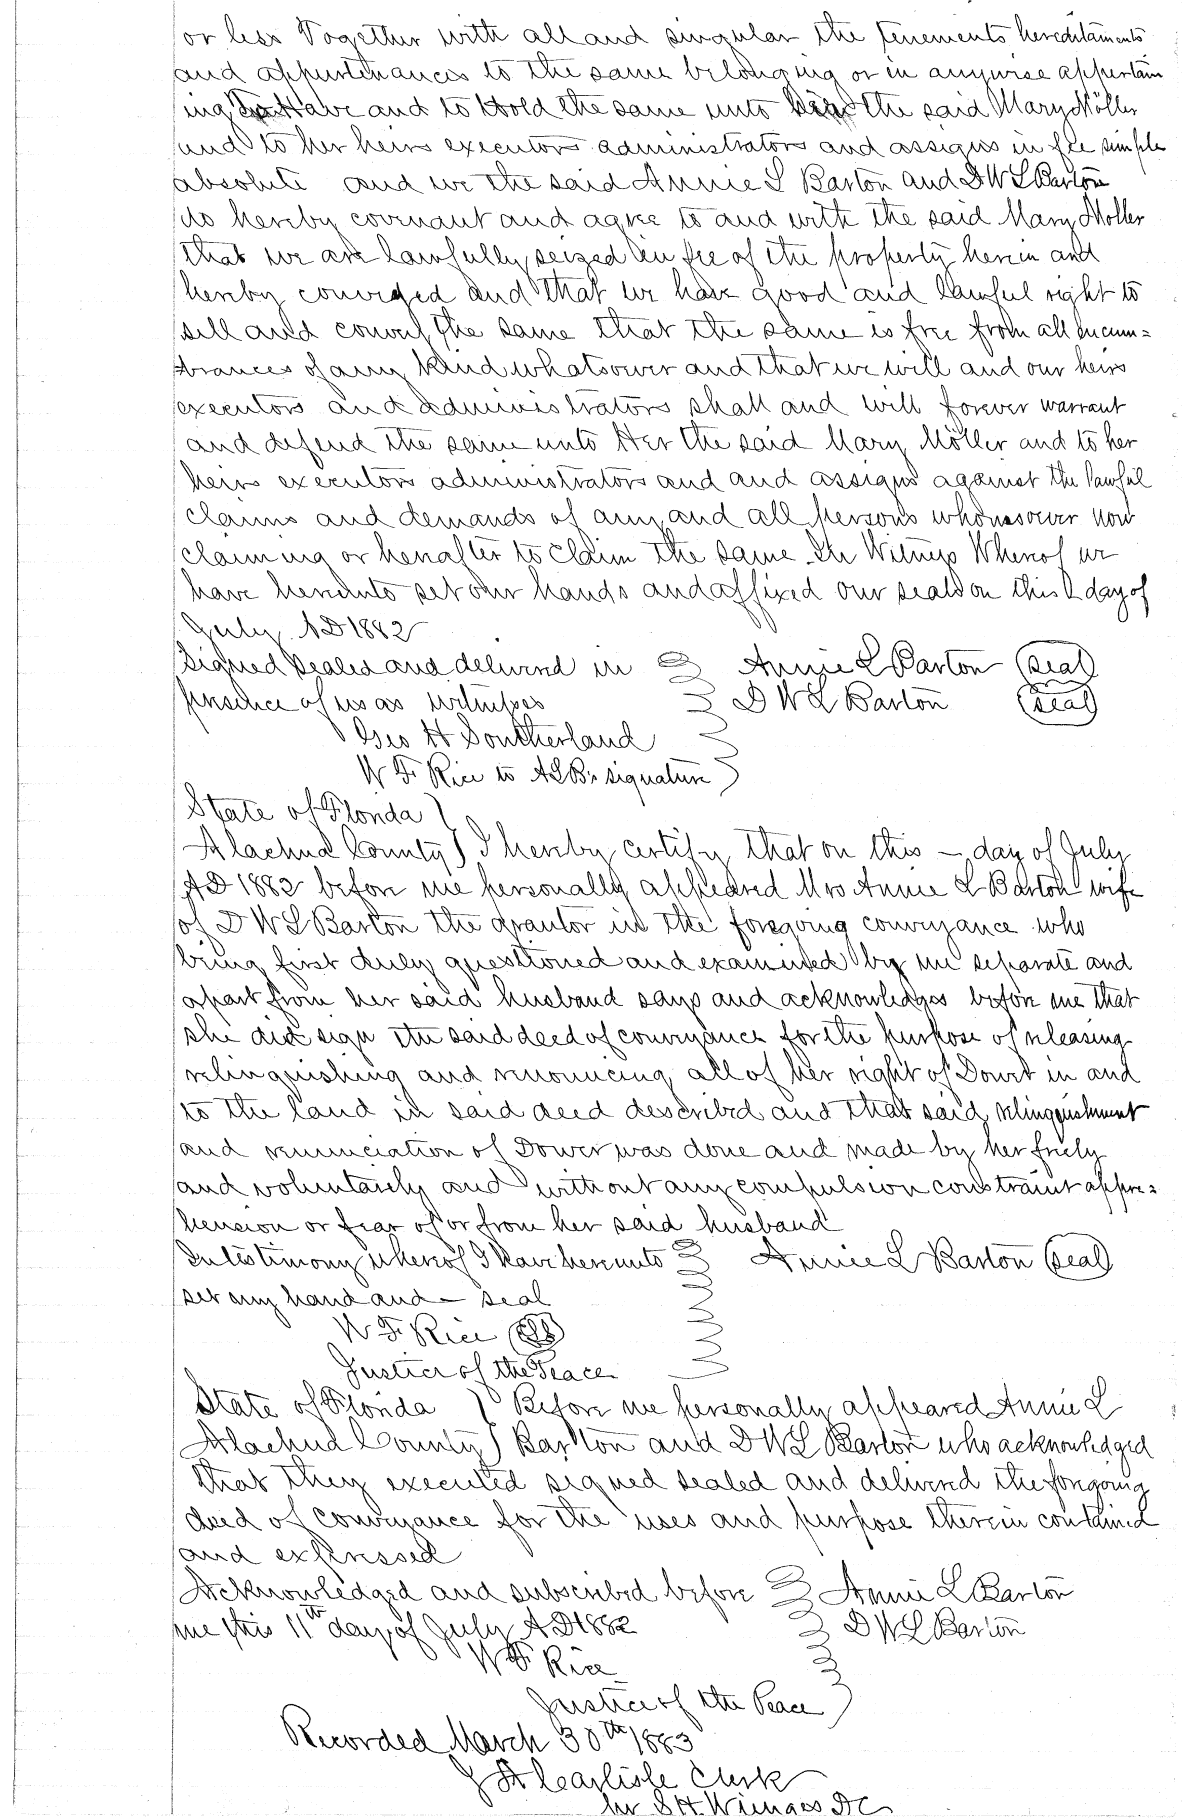 or less Together with all and singular the tenements hereditaments
and appurtenances to the same belonging or in anywise appertain
ing To Have and to Hold the same unto the said Mary Möller
and to her heirs executors administrators and assigns in fee simple
absolute and we the said Annie L Barton and D W L Barton
do hereby covenant and agree to and with the said Mary Moller
that we are lawfully seized in fee of the property herein and
hereby conveyed and that we have good and lawful right to
sell and convey the same that the same is free from all incum=
brances of any kind whatsoever and that we will and our heirs
executors and administrators shall and will forever warrant
and defend the same unto Her the said Mary Möller and to her
heirs executors administrators and and assigns against the lawful
claims and demands of any and all persons whomsoever now
claiming or hereafter to claim the same In Witness Whereof we
have hereunto set our hands and affixed our seals on this day of
July AD 1882
Signed sealed and delivered in Annie L Barton (seal)
presence of us as witnesses D W L Barton (seal)
Geo H Southerland
W F Rice to ALB's signature
State of Florida }
Alachua County } I hereby certify that on this — day of July
AD 1882 before me personally appeared Mrs Annie L Barton wife
of D W L Barton the grantor in the foregoing conveyance who
being first duly questioned and examined by me separate and
apart from her said husband says and acknowledges before me that
she did sign the said deed of conveyance for the purpose of releasing
relinquishing and renouncing all of her right of Dower in and
to the land in said deed described and that said relinquishment
and renunciation of Dower was done and made by her freely
and voluntarily and without any compulsion constraint appre=
hension or fear of or from her said husband
In testimony whereof I have hereunto Annie L Barton (seal)
set my hand and — seal
W F Rice
Justice of the Peace
State of Florida } Before me personally appeared Annie L
Alachua County } Barton and D W L Barton who acknowledged
that they executed signed sealed and delivered the foregoing
deed of conveyance for the uses and purpose therein contained
and expressed
Acknowledged and subscribed before Annie L Barton
me this 11th day of July AD 1882 D W L Barton
W F Rice
Justice of the Peace
Recorded March 30th 1883
J A Carlisle Clerk
S H Wienges DC